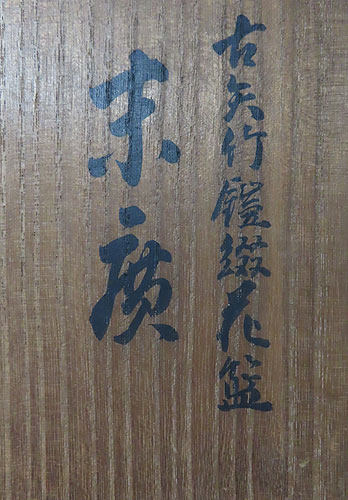 古矢竹鎧綴花籃
末廣